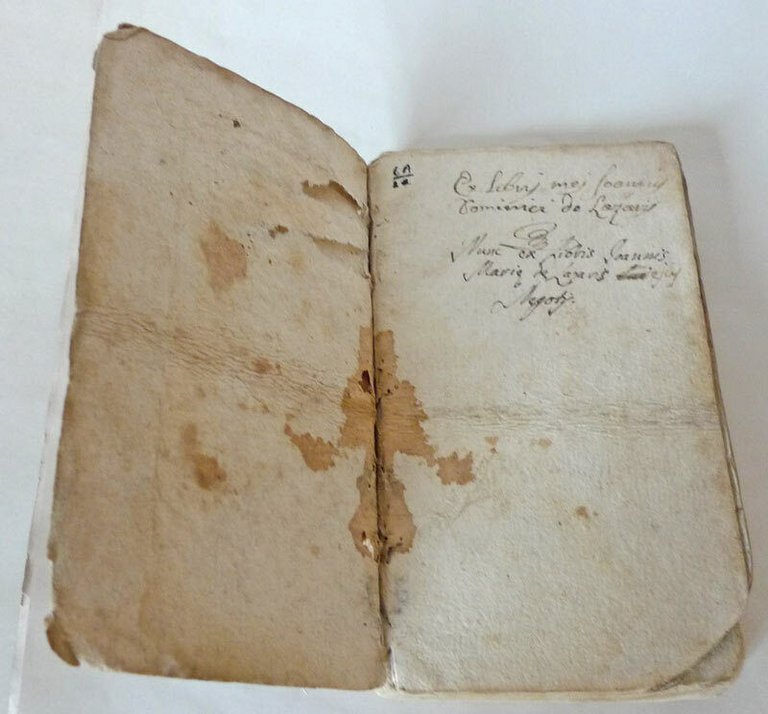 Ex libris mei Joannis
Dominici de Lazaris
Nunc ex Libris Joannis
Marię de Lazaris
Nepotis